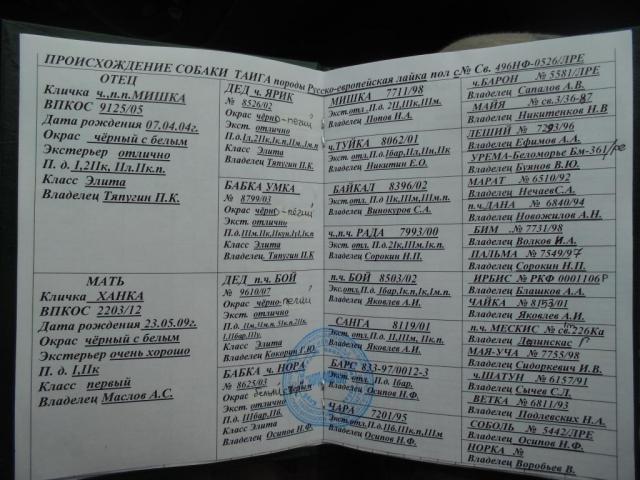 ПРОИСХОЖДЕНИЕ СОБАКИ ТАИГА породы Русско-европейская лайка пол с № Св. 496НФ-0526/ЛРЕ
ОТЕЦ
Кличка ч.,п.п.МИШКА
ВПКОС 9125/05
Дата рождения 07.04.04г.
Окрас чёрный с белым
Экстерьер отлично
П. д. I,2IIк, Пл.IIк.п.
Класс Элита
Владелец Тяпугин П.К.
МАТЬ
Кличка ХАНКА
ВПКОС 2203/12
Дата рождения 23.05.09г.
Окрас чёрный с белым
Экстерьер очень хорошо
П. д. I,IIк
Класс первый
Владелец Маслов А.С.
ДЕД ч. ЯРИК
№ 8526/02
Окрас чёрно-пегий
Экст. отлично
Класс Элита
Владелец Тяпугин П.К
БАБКА УМКА
№ 8799/03
Окрас чёрно-пегий
Экст. отлично
Класс Элита
Владелец Тяпугин П.К
ДЕД п.ч. БОЙ
№ 9610/07
Окрас чёрно-пегий
Экст. отлично
Класс Элита
Владелец Кокорин Г.Ю.
БАБКА ч. НОРА
№ 8625/03
Окрас
Экст. отлично
П.д. IIIбар,IIб.
Класс Элита
Владелец Осипов Н.Ф.
МИШКА 7711/98
Экст.отл .П.д. 2II,IIк,IIIм.
Владелец Попов И.А.
ч.ТУЙКА 8062/01
Экст.отл. П.д.Iбар,IIл,IIк,IIм
Владелец Никитин Е.О.
БАЙКАЛ 8396/02
Экст.отл. П.д IIк,IIIм,IIIк.п.
Владелец Винокуров С.А.
ч.,п.ч. РАДА 7993/00
Экст.отл. П.д.2Iк,IIIм,Iк.п.
Владелец Сорокин Н.П.
п.ч. БОЙ 8503/02
Владелец Яковлев А.И.
САНГА 8119/01
Владелец Яковлев А.И.
БАРС 833-97/0012-3
Экст.отл. П.д. Iбар.
Владелец Осипов Н.Ф.
ЧАРА 7201/95
Экст.отл.,П.д.IIб,IIIк.п,IIIм
Владелец Осипов Н.Ф.
ч.БАРОН № 5581/ЛРЕ
Владелец Сапалов А.В.
МАЙЯ № св.3/36-87
Владелец Никитенков Н.В
ЛЕШИЙ № 7293/96
Владелец Ефимов А.А.
УРЕМА-Беломорье Бм-361/ре
Владелец Буянов В.Ю.
МАРАТ № 6510/92
Владелец НечаевС.А.
п.ч.ДАНА № 6840/94
Владелец Новожилов А.Н.
БИМ .№ 7731/98
Владелец Волков И.А.
ПАЛЬМА № 7549/97
Владелец Сорокин Н.П.
ИРБИС № РКФ 0001106Р
Владелец Блашков А.А.
ЧАЙКА № 8153/01
Владелец Яковлев А.И.
п.ч. МЕСКИС № св.226Ка
Владелец
МАЯ-УЧА № 7755/98
Владелец Сидоркевич И.В.
ч.ШАТУН № 6157/91
Владелец Сычев С.Л.
ВЕТКА № 6811/93
Владелец Подлевских Н.А.
СОБОЛЬ № 5442/ЛРЕ
Владелец Осипов Н.Ф.
НОРКА №
Владелец Воробьев В.